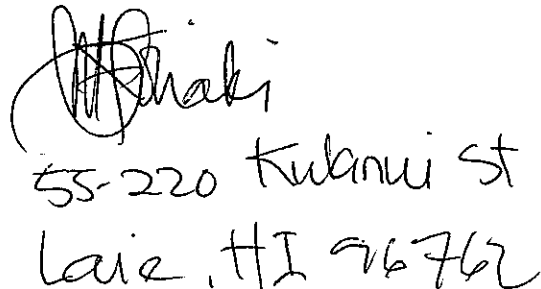 55-220 Kulanui St
Laie, HI 96762